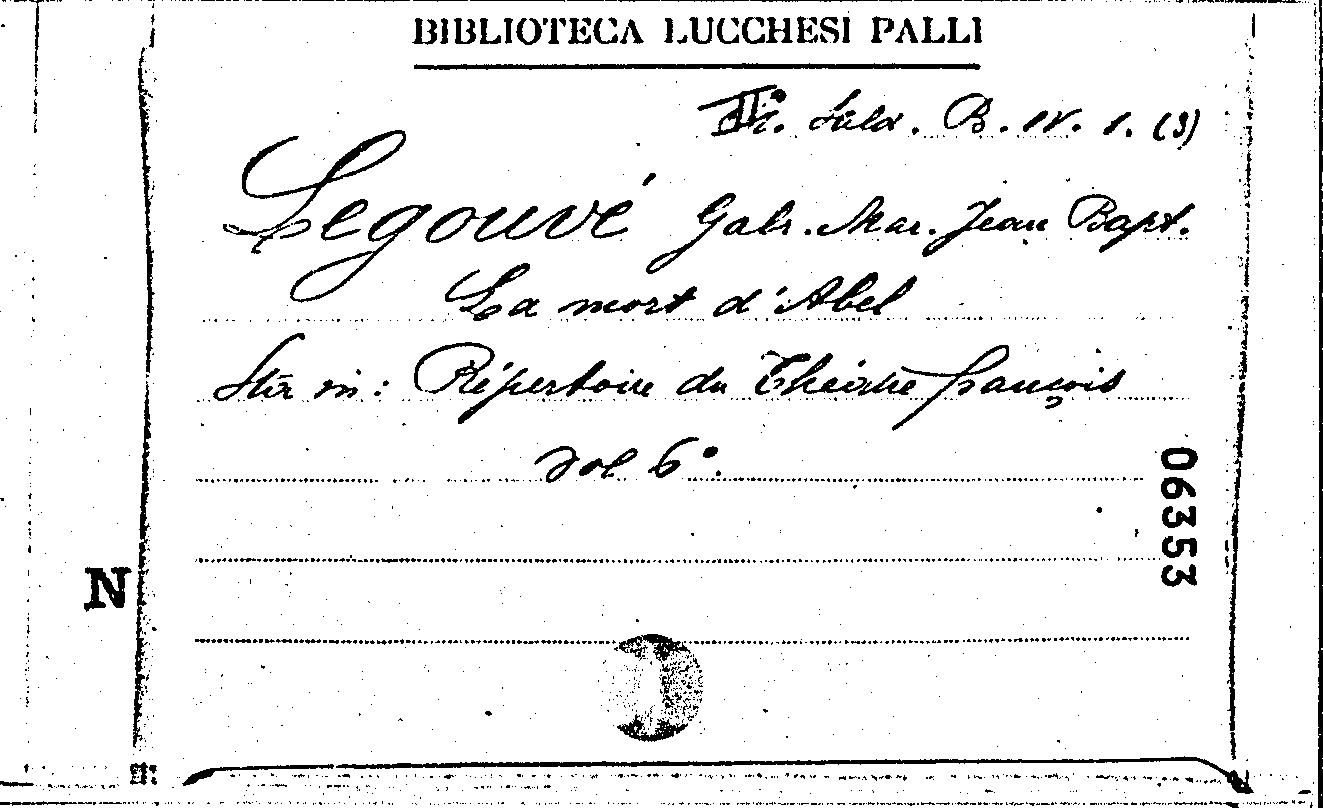 BIBLIOTECA LUCCHESI PALLI
B. IV. 1. (3)
Legouvé Gabr. Mar. Jean Bapt.
La mort d'Abel
Sta in: Répertoire du Théâtre françois
vol 6°.
06353
N